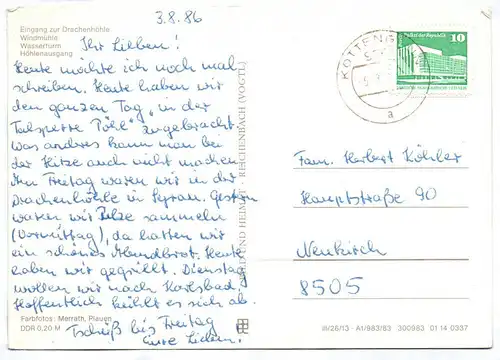 3.8.86
Eingang zur Drachenhöhle
Windmühle
Wasserturm
Höhlenausgang
Ihr Lieben!
Heute möchte ich noch mal
schreiben. Heute haben wir
den ganzen Tag in der
Talsperre Pöhl zugebracht
was anderes kann man bei
der Hitze auch nicht machen.
Am Freitag waren wir in der
Drachenhöhle in Syrau. Gestern
waren wir Pilze sammeln
(Vormittag), da hatten wir
ein schönes Abendbrot. Heute
haben wir gegrillt. Dienstag
wollen wir nach Karlsbad.
Hoffentlich kühlt es sich ab.
Tschüß bis Freitag
Eure Lieben!
Farbfotos: Merrath, Plauen
DDR 0,20 M
BILD UND HEIMAT · REICHENBACH (VOGTL)
10
a
Fam. Herbert Köhler
Hauptstraße 90
Neukirch
8505
III/26/13 · A1/983/83 300983 01 14 0337